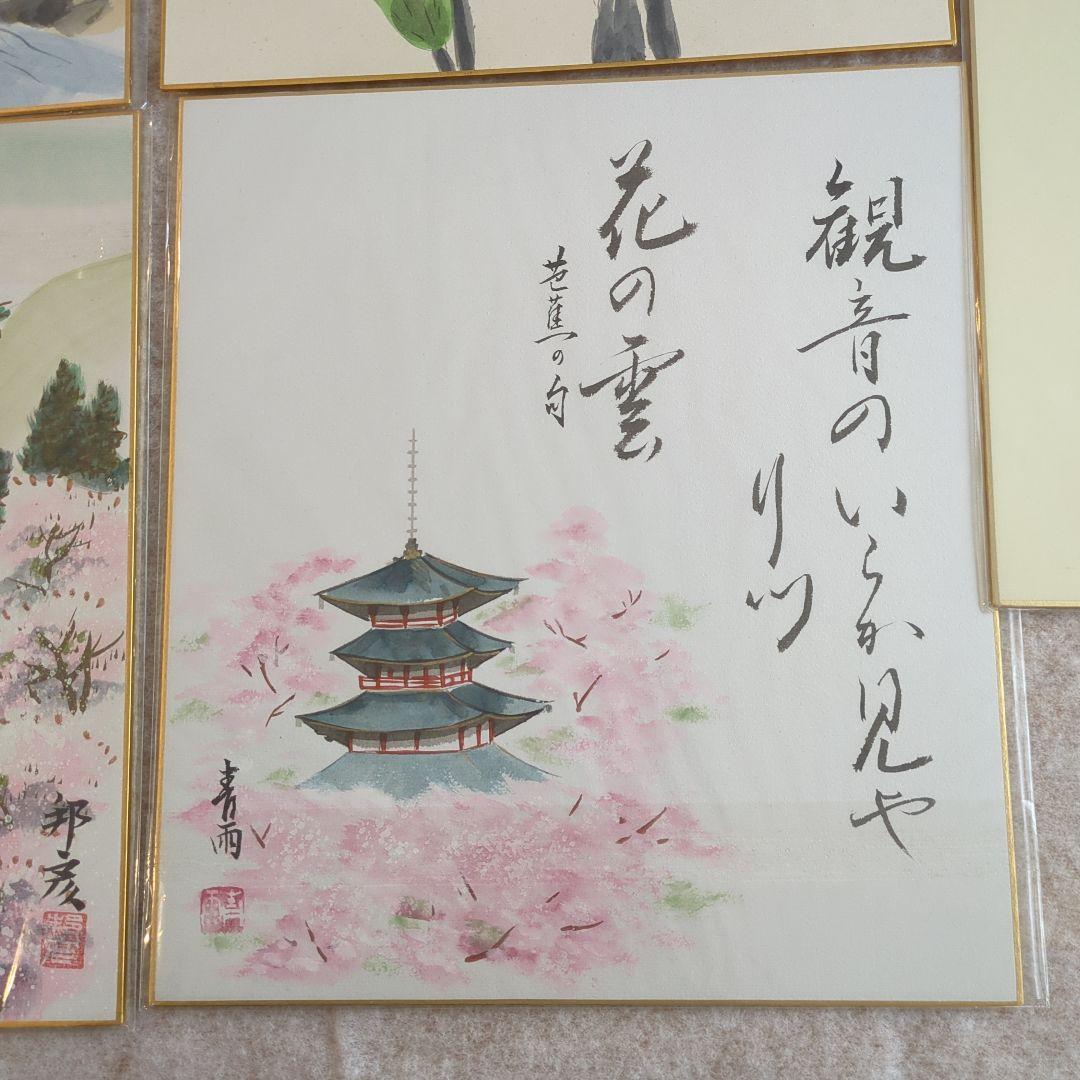 観音のいらか見や
りつ
花の雲
芭蕉の句
青雨
青雨
邦彦